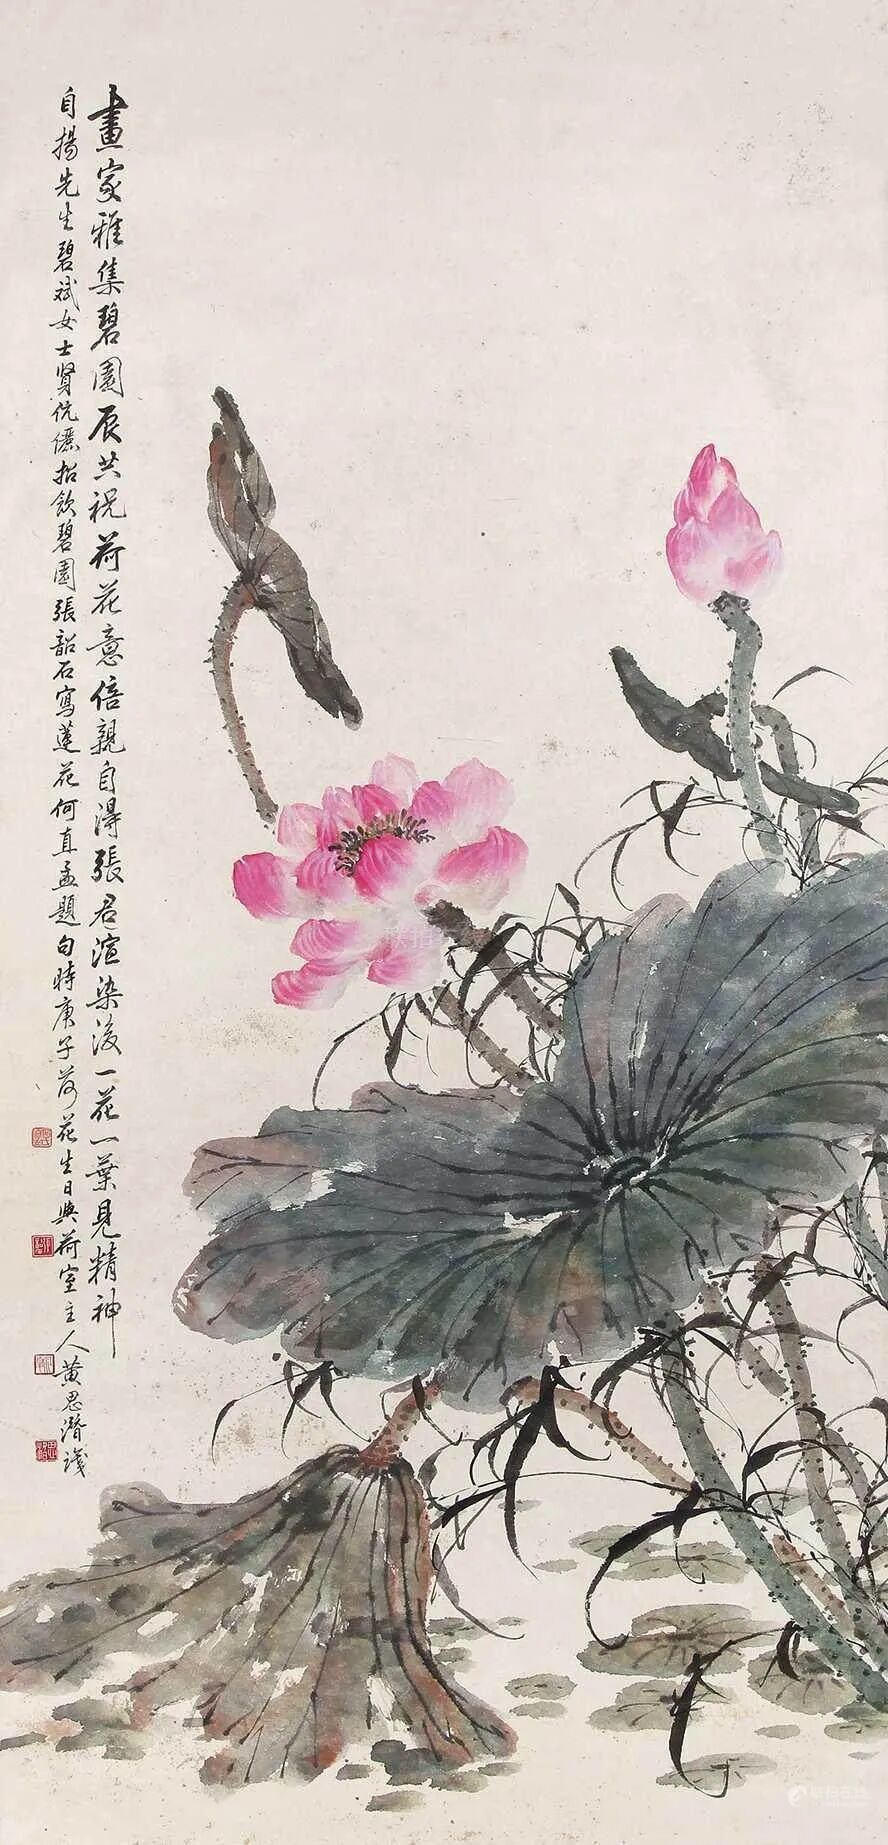 畫家雅集碧園辰共祝荷花意倍親自得張君渲染後一花一葉見精神
自揚先生碧斌女士賢伉儷招飲碧園張韶石寫蓮花何直孟題句時庚子荷花生日與荷室主人黃思潛識